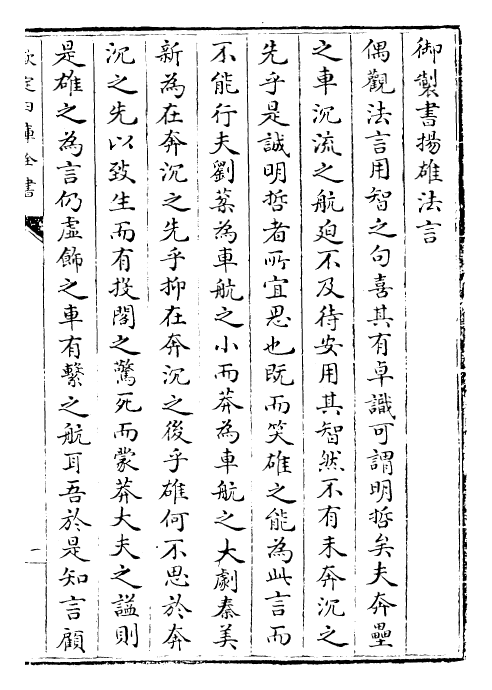 御製書揚雄法言
偶觀法言用智之句喜其有卓識可謂明哲矣夫奔壘
之車沉流之航廹不及待安用其智然不有未奔沉之
先乎是誠明哲者所宜思也既而笑雄之能為此言而
不能行夫劉棻為車航之小而莽為車航之大劇秦美
新為在奔沉之先乎抑在奔沉之後乎雄何不思於奔
沉之先以致生而有投閣之驚死而蒙莽大夫之謚則
是雄之為言仍虛飾之車有繫之航耳吾於是知言顧
欽定四庫全書
一